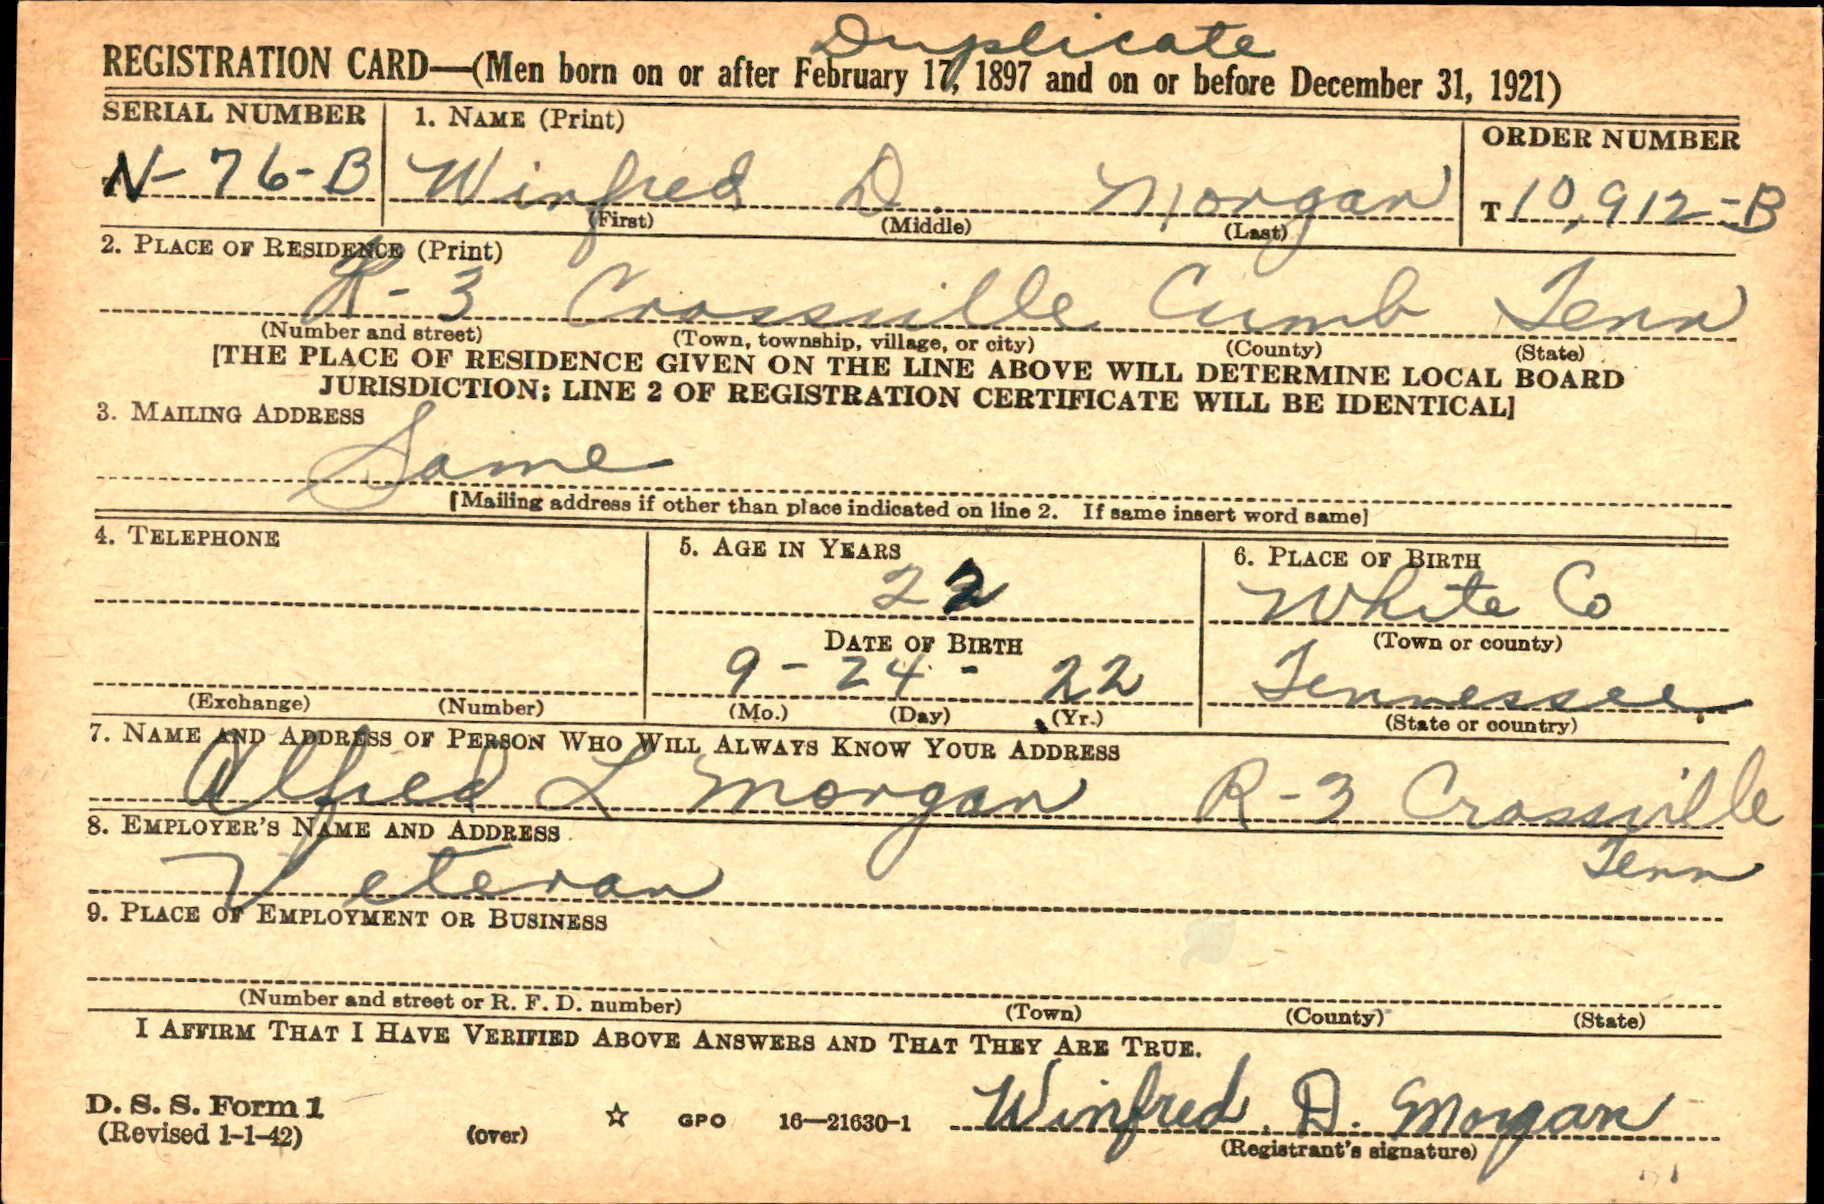 Duplicate
REGISTRATION CARD—(Men born on or after February 17, 1897 and on or before December 31, 1921)
SERIAL NUMBER 1. NAME (Print) ORDER NUMBER
N-76-B Winfred D. Morgan T 10,912-B
(First) (Middle) (Last)
2. PLACE OF RESIDENCE (Print)
R-3 Crossville Cumb Tenn
(Number and street) (Town, township, village, or city) (County) (State)
[THE PLACE OF RESIDENCE GIVEN ON THE LINE ABOVE WILL DETERMINE LOCAL BOARD
JURISDICTION; LINE 2 OF REGISTRATION CERTIFICATE WILL BE IDENTICAL]
3. MAILING ADDRESS
Same
[Mailing address if other than place indicated on line 2. If same insert word same]
4. TELEPHONE 5. AGE IN YEARS 6. PLACE OF BIRTH
22 White Co
DATE OF BIRTH (Town or county)
9-24-22 Tennessee
(Exchange) (Number) (Mo.) (Day) (Yr.) (State or country)
7. NAME AND ADDRESS OF PERSON WHO WILL ALWAYS KNOW YOUR ADDRESS
Alfred L Morgan R-3 Crossville
8. EMPLOYER'S NAME AND ADDRESS
Tenn
Veteran
9. PLACE OF EMPLOYMENT OR BUSINESS
(Number and street or R. F. D. number) (Town) (County) (State)
I AFFIRM THAT I HAVE VERIFIED ABOVE ANSWERS AND THAT THEY ARE TRUE.
D. S. S. Form 1
(Revised 1-1-42) (over) ☆ GPO 16—21630-1 Winfred D. Morgan
(Registrant's signature)